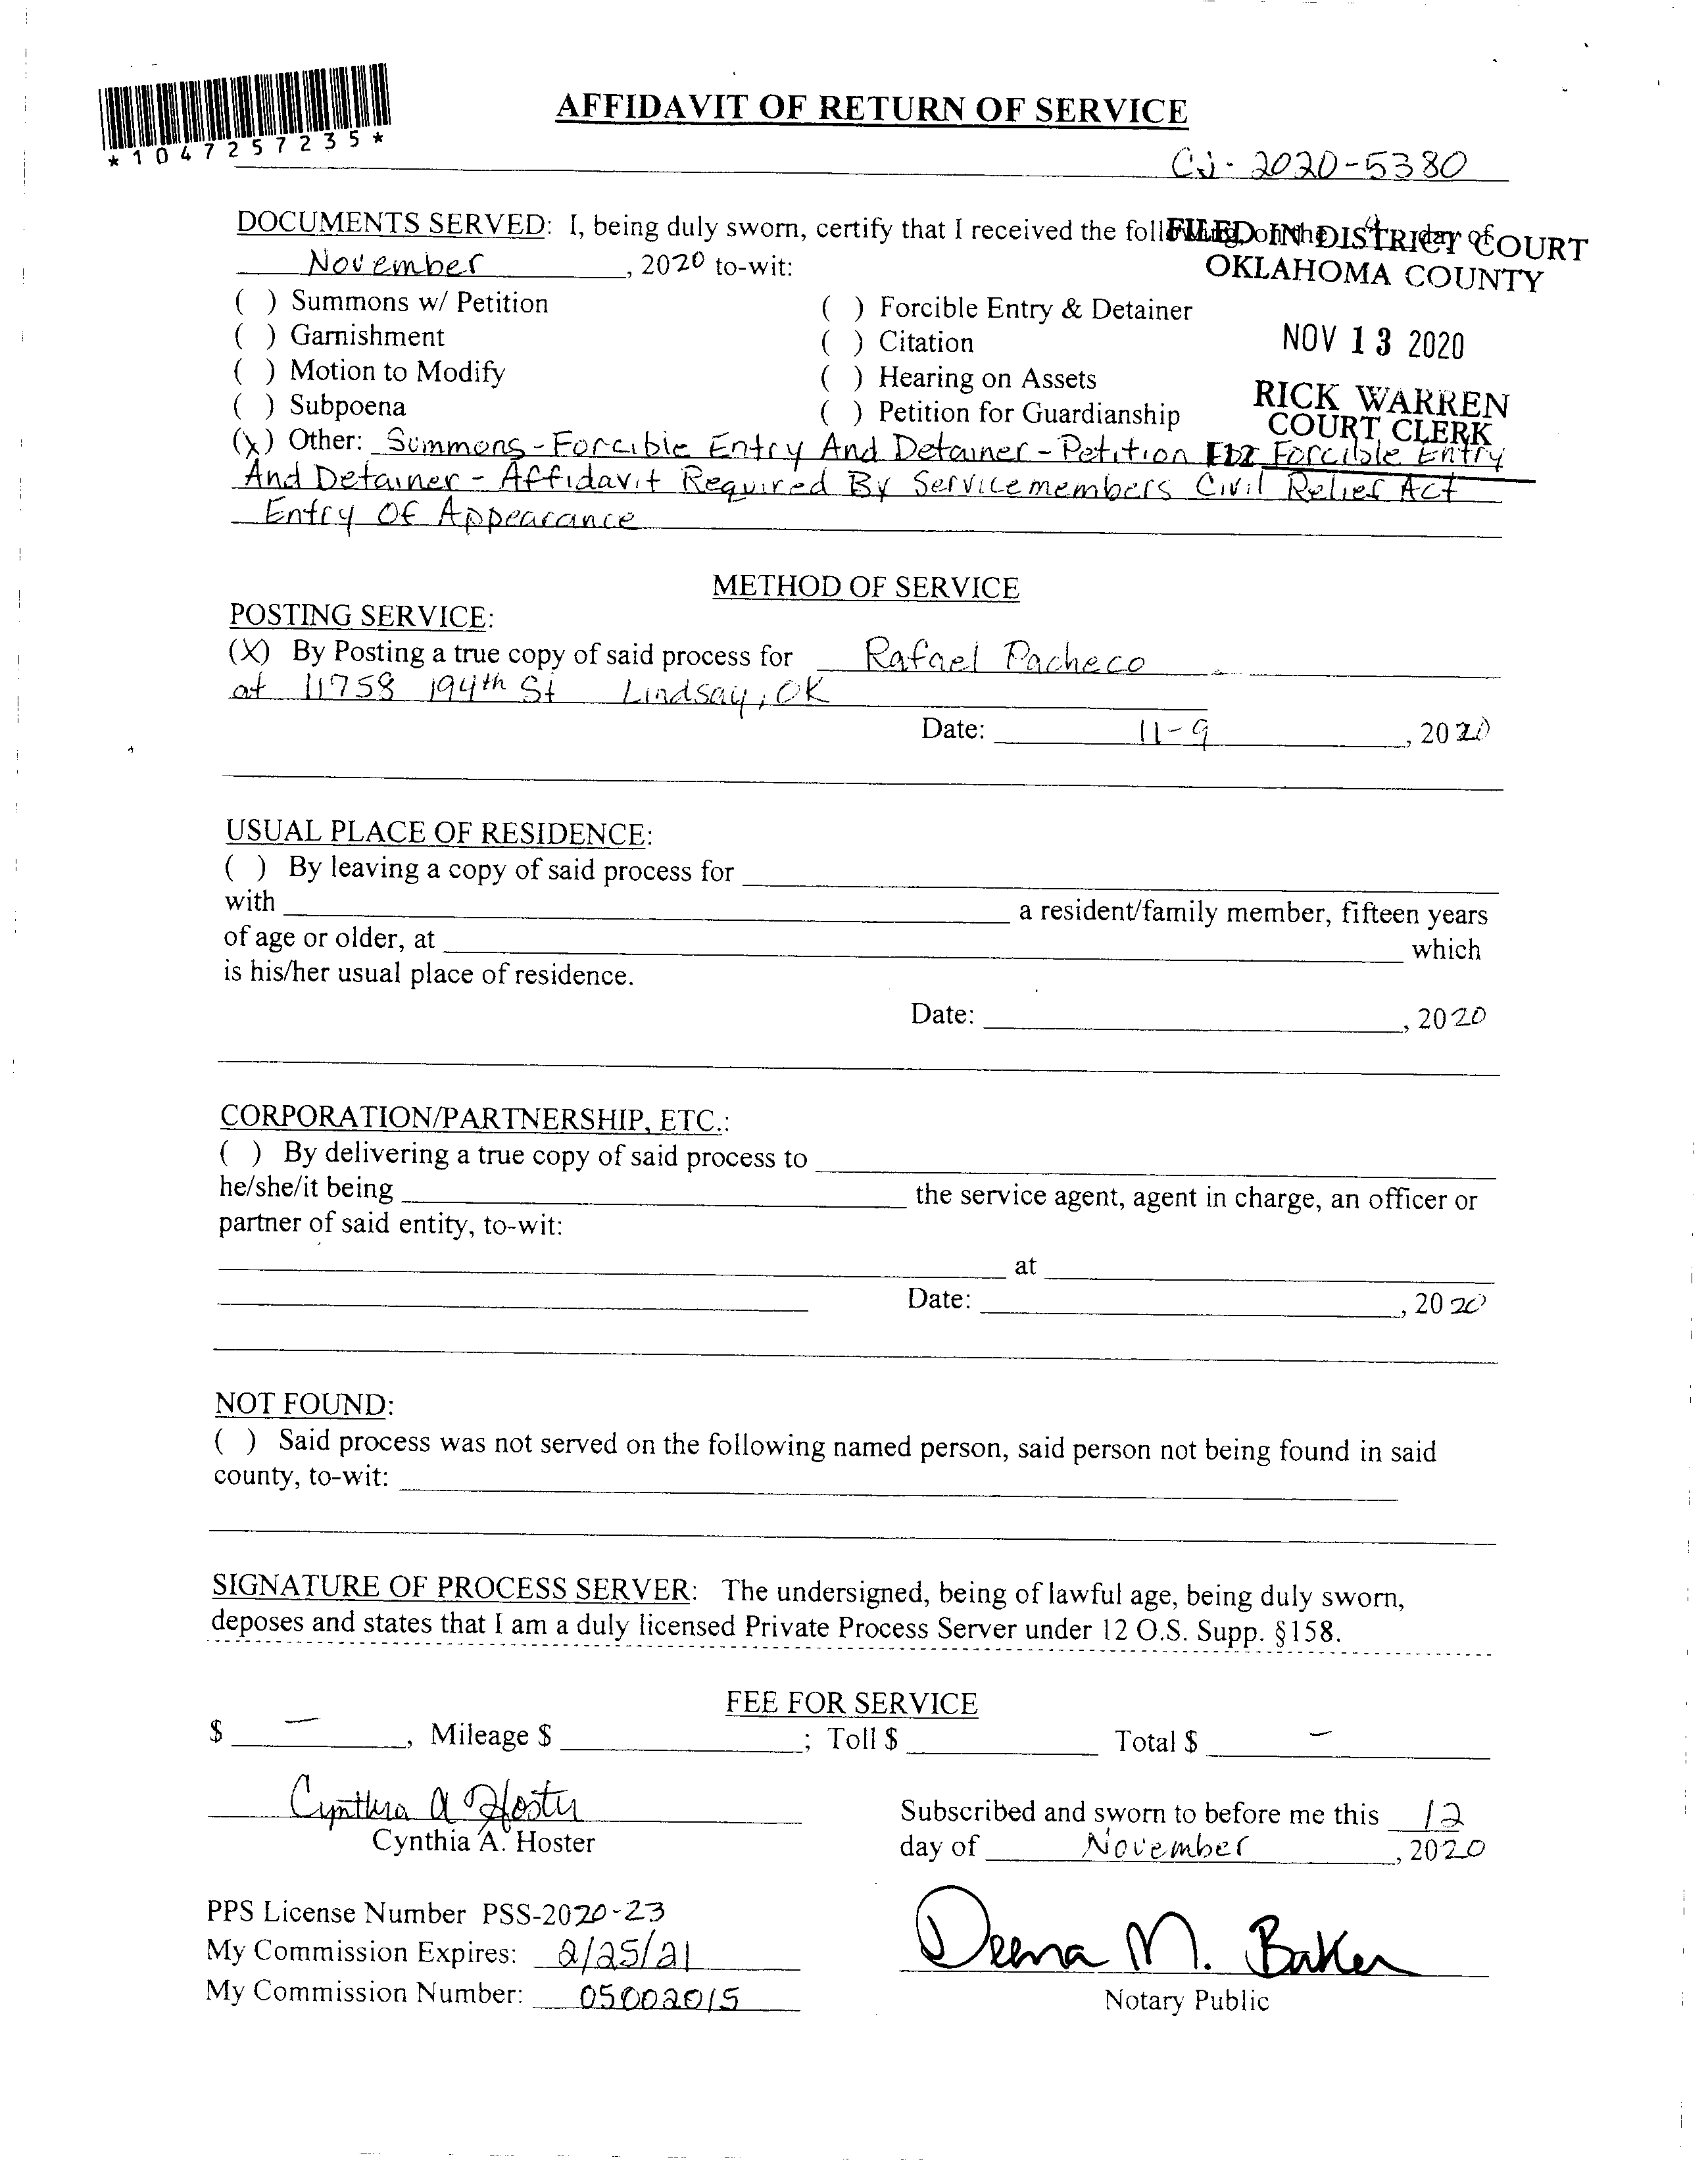 AFFIDAVIT OF RETURN OF SERVICE
*1047257235*
CJ-2020-5380
DOCUMENTS SERVED: I, being duly sworn, certify that I received the following on the 4 day of
FILED IN DISTRICT COURT
OKLAHOMA COUNTY
November, 2020 to-wit:
( ) Summons w/ Petition
( ) Forcible Entry & Detainer
( ) Garnishment
( ) Citation
NOV 13 2020
( ) Motion to Modify
( ) Hearing on Assets
( ) Subpoena
( ) Petition for Guardianship
RICK WARREN
COURT CLERK
(x) Other: Summons - Forcible Entry And Detainer - Petition For Forcible Entry
And Detainer - Affidavit Required By Servicemembers Civil Relief Act
Entry Of Appearance
METHOD OF SERVICE
POSTING SERVICE:
(X) By Posting a true copy of said process for Rafael Pacheco
at 11758 194th St Lindsay, OK
Date: 11-9, 2020
USUAL PLACE OF RESIDENCE:
( ) By leaving a copy of said process for
with a resident/family member, fifteen years
of age or older, at which
is his/her usual place of residence.
Date: , 2020
CORPORATION/PARTNERSHIP, ETC.:
( ) By delivering a true copy of said process to
he/she/it being the service agent, agent in charge, an officer or
partner of said entity, to-wit:
at
Date: , 2020
NOT FOUND:
( ) Said process was not served on the following named person, said person not being found in said
county, to-wit:
SIGNATURE OF PROCESS SERVER: The undersigned, being of lawful age, being duly sworn,
deposes and states that I am a duly licensed Private Process Server under 12 O.S. Supp. §158.
FEE FOR SERVICE
$ - , Mileage $ ; Toll $ Total $ -
Cynthia A Hoster
Cynthia A. Hoster
Subscribed and sworn to before me this 12
day of November, 2020
PPS License Number PSS-2020-23
My Commission Expires: 2/25/21
My Commission Number: 05002015
Deena M. Baker
Notary Public